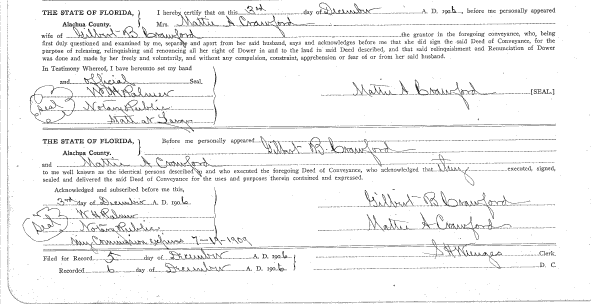 THE STATE OF FLORIDA, I hereby certify that on this 3rd day of December A. D. 1906, before me personally appeared
Alachua County. Mrs. Mattie A Crawford
wife of Gilbert B Crawford the grantor in the foregoing conveyance, who, being
first duly questioned and examined by me, separate and apart from her said husband, says and acknowledges before me that she did sign the said Deed of Conveyance, for the
purpose of releasing, relinquishing and renouncing all her right of Dower in and to the land in said Deed described, and that said relinquishment and Renunciation of Dower
was done and made by her freely and voluntarily, and without any compulsion, constraint, apprehension or fear of or from her said husband.
In Testimony Whereof, I have hereunto set my hand
and official Seal.
W H Palmer Mattie A Crawford [SEAL.]
Seal Notary Public
State at Large
THE STATE OF FLORIDA, Before me personally appeared Gilbert B. Crawford
Alachua County.
and Mattie A Crawford
to me well known as the identical persons described in and who executed the foregoing Deed of Conveyance, who acknowledged that they executed, signed,
sealed and delivered the said Deed of Conveyance for the uses and purposes therein contained and expressed.
Acknowledged and subscribed before me this,
3rd day of December A. D. 1906. Gilbert B Crawford
W H Palmer
Seal Notary Public Mattie A Crawford
My Commission expires 7-19-1909
Filed for Record 5 day of December A. D. 1906 Clerk.
Recorded 6 day of December A. D. 1906. D. C.